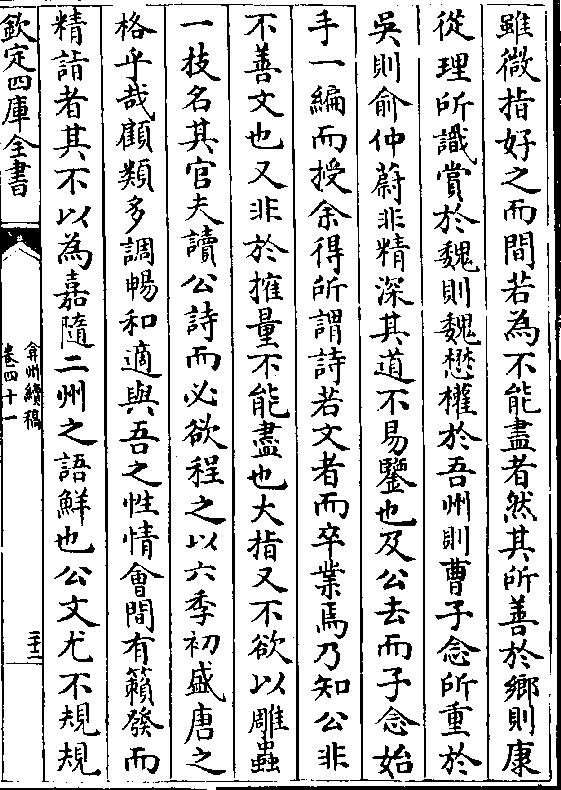 雖微指好之而間若為不能盡者然其所善於鄉則康
從理所識賞於魏則魏懋權於吾州則曹子念所重於
吳則俞仲蔚非精深其道不易鑒也及公去而子念始
手一編而授余得所謂詩若文者而卒業焉乃知公非
不善文也又非於搉量不能盡也大指又不欲以雕蟲
一技名其官夫讀公詩而必欲程之以六季初盛唐之
格乎哉顧類多調暢和適與吾之性情會間有籟發而
精詣者其不以為嘉隨二州之語鮮也公文尤不規規
欽定四庫全書
弇州續稿
卷四十一
三十二